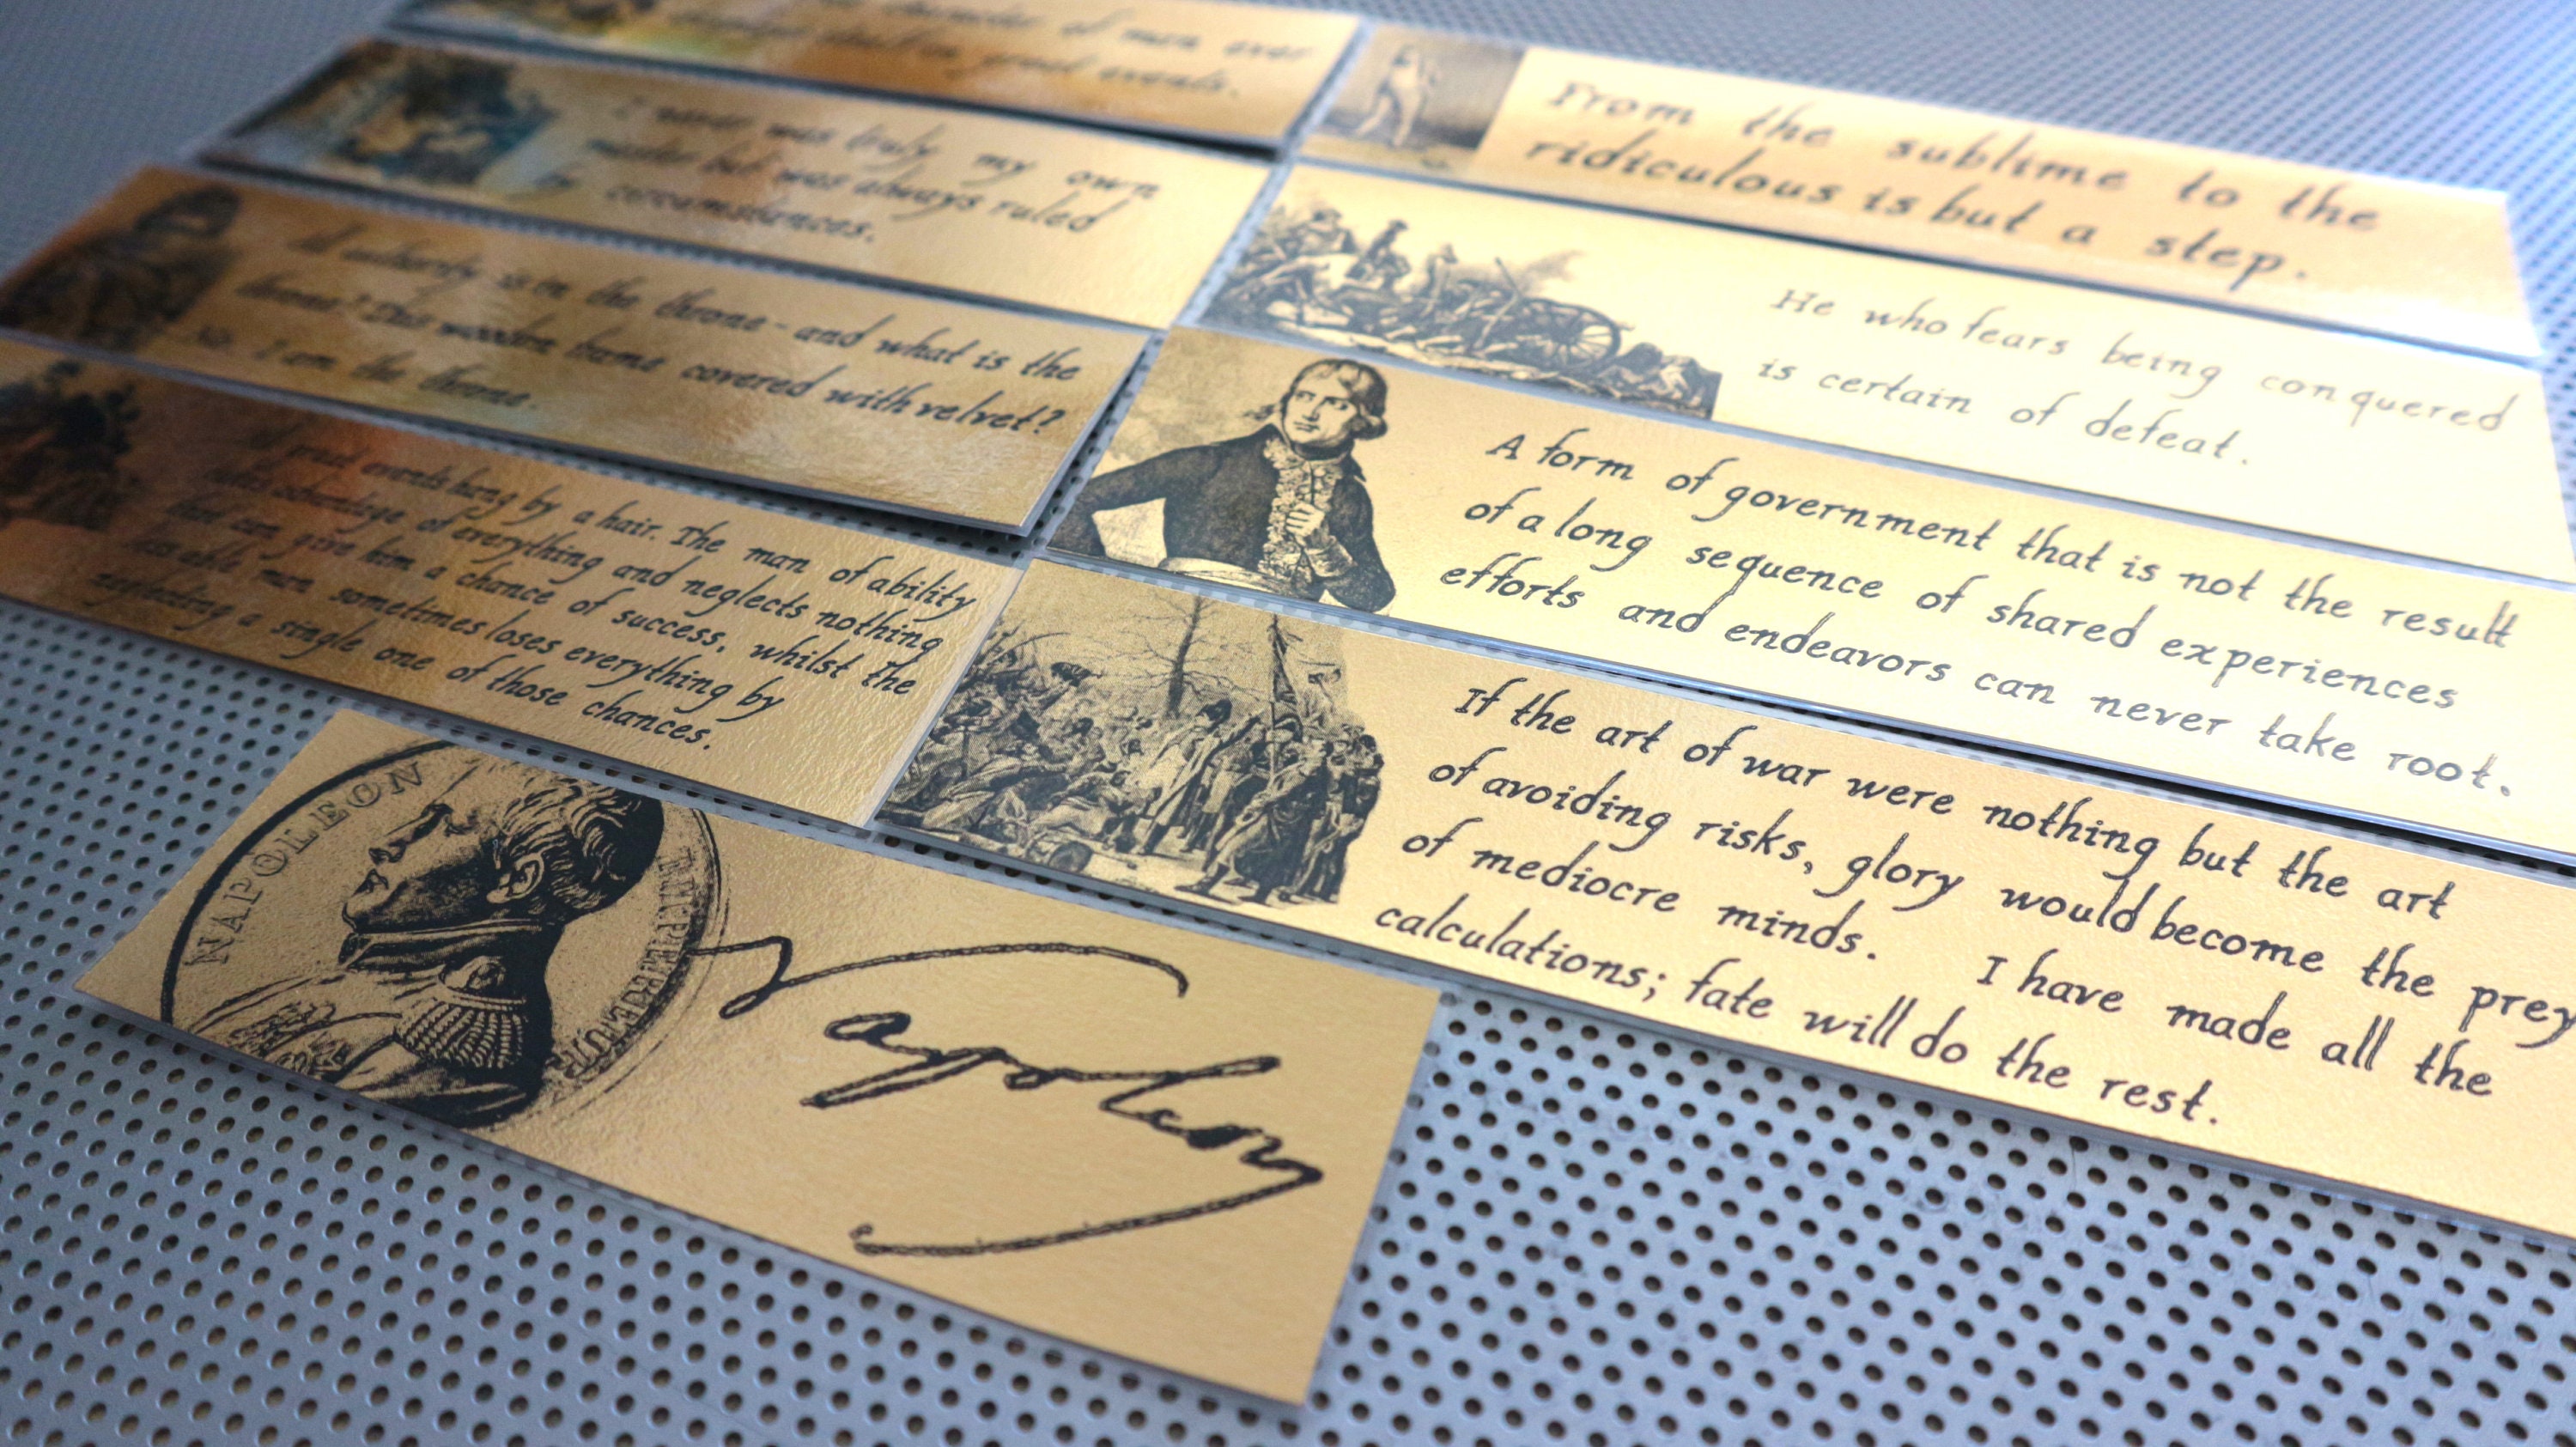 of men over
great events.
I never was truly my own
master but was always ruled
by circumstances.
authority is in the throne - and what is the
throne? This wooden frame covered with velvet?
No. I am the throne.
great events hang by a hair. The man of ability
takes advantage of everything and neglects nothing
that can give him a chance of success, whilst the
less able man sometimes loses everything by
neglecting a single one of those chances.
NAPOLEON
Napoleon
From the sublime to the
ridiculous is but a step.
He who fears being conquered
is certain of defeat.
A form of government that is not the result
of a long sequence of shared experiences
efforts and endeavors can never take root.
If the art of war were nothing but the art
of avoiding risks, glory would become the prey
of mediocre minds. I have made all the
calculations; fate will do the rest.